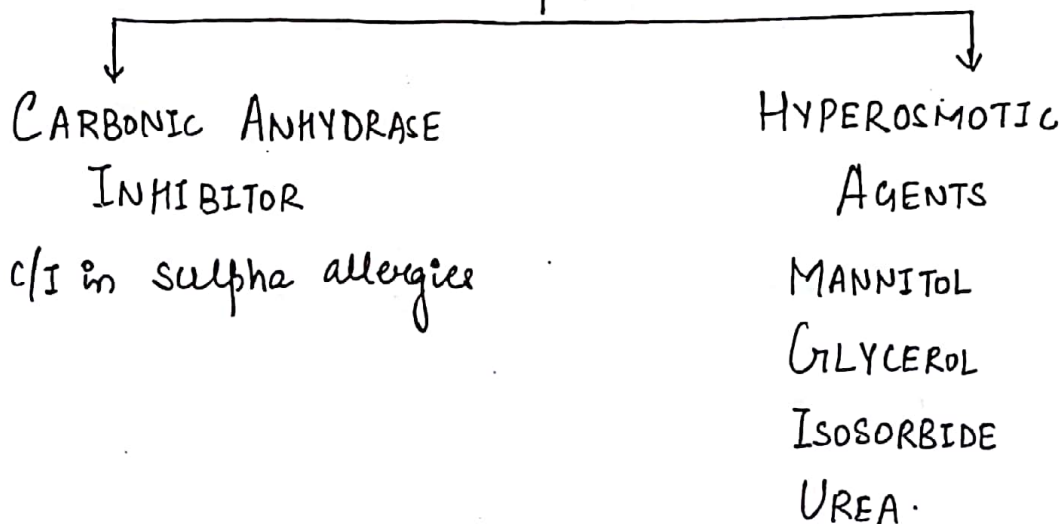 CARBONIC ANHYDRASE
INHIBITOR
c/I in sulpha allergies
HYPEROSMOTIC
AGENTS
MANNITOL
GLYCEROL
ISOSORBIDE
UREA.